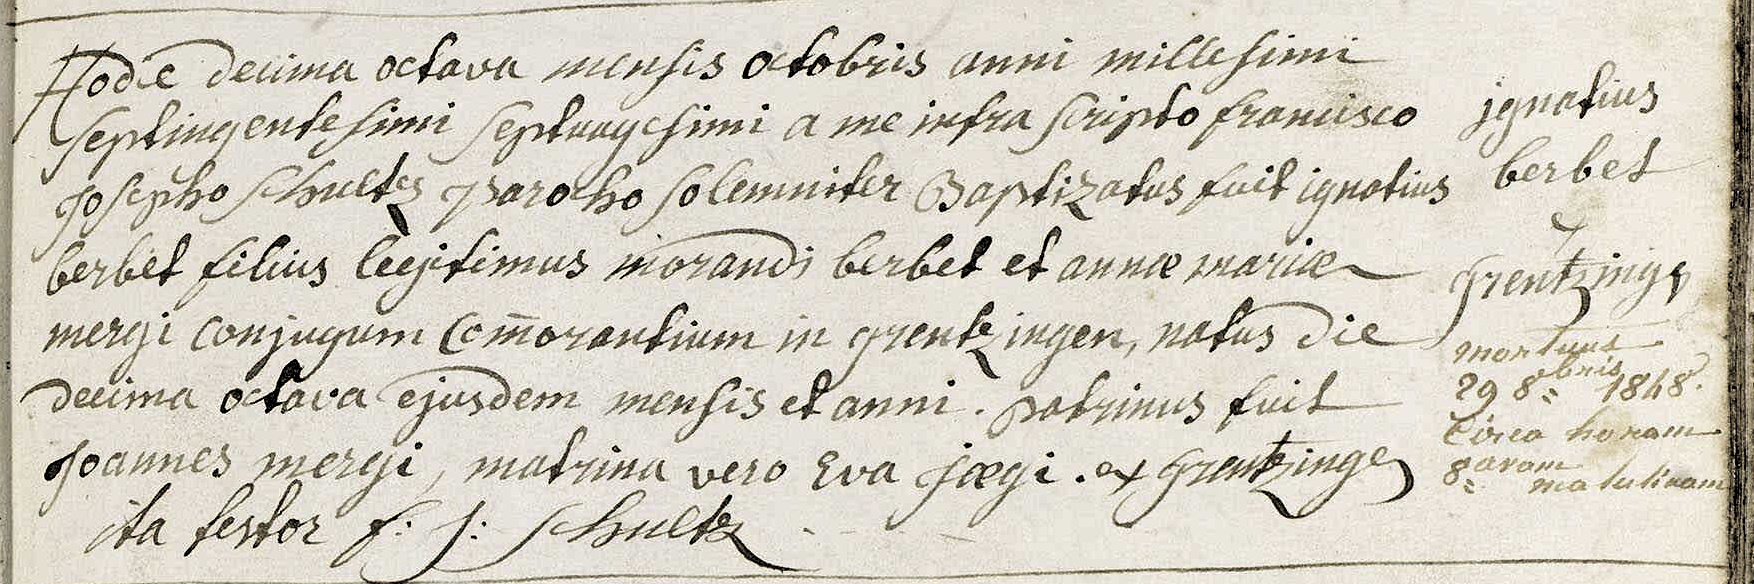 Hodie decima octava mensis octobris anni millesimi
septingentesimi septuagesimi a me infra scripto francisco
Josepho Schultz parocho solemniter Baptizatus fuit ignatius
berbet filius legitimus morandi berbet et annæ mariæ
mergi conjugum Com̄orantium in grentzingen, natus die
decima octava ejusdem mensis et anni. patrinus fuit
Joannes mergi, matrina vero Eva jægi. ex grentzinge
ita testor f: j: Schultz
ignatius
berbet
grentzinge
mortuus
29 8bris 1848.
Circa horam
8avam matutinam